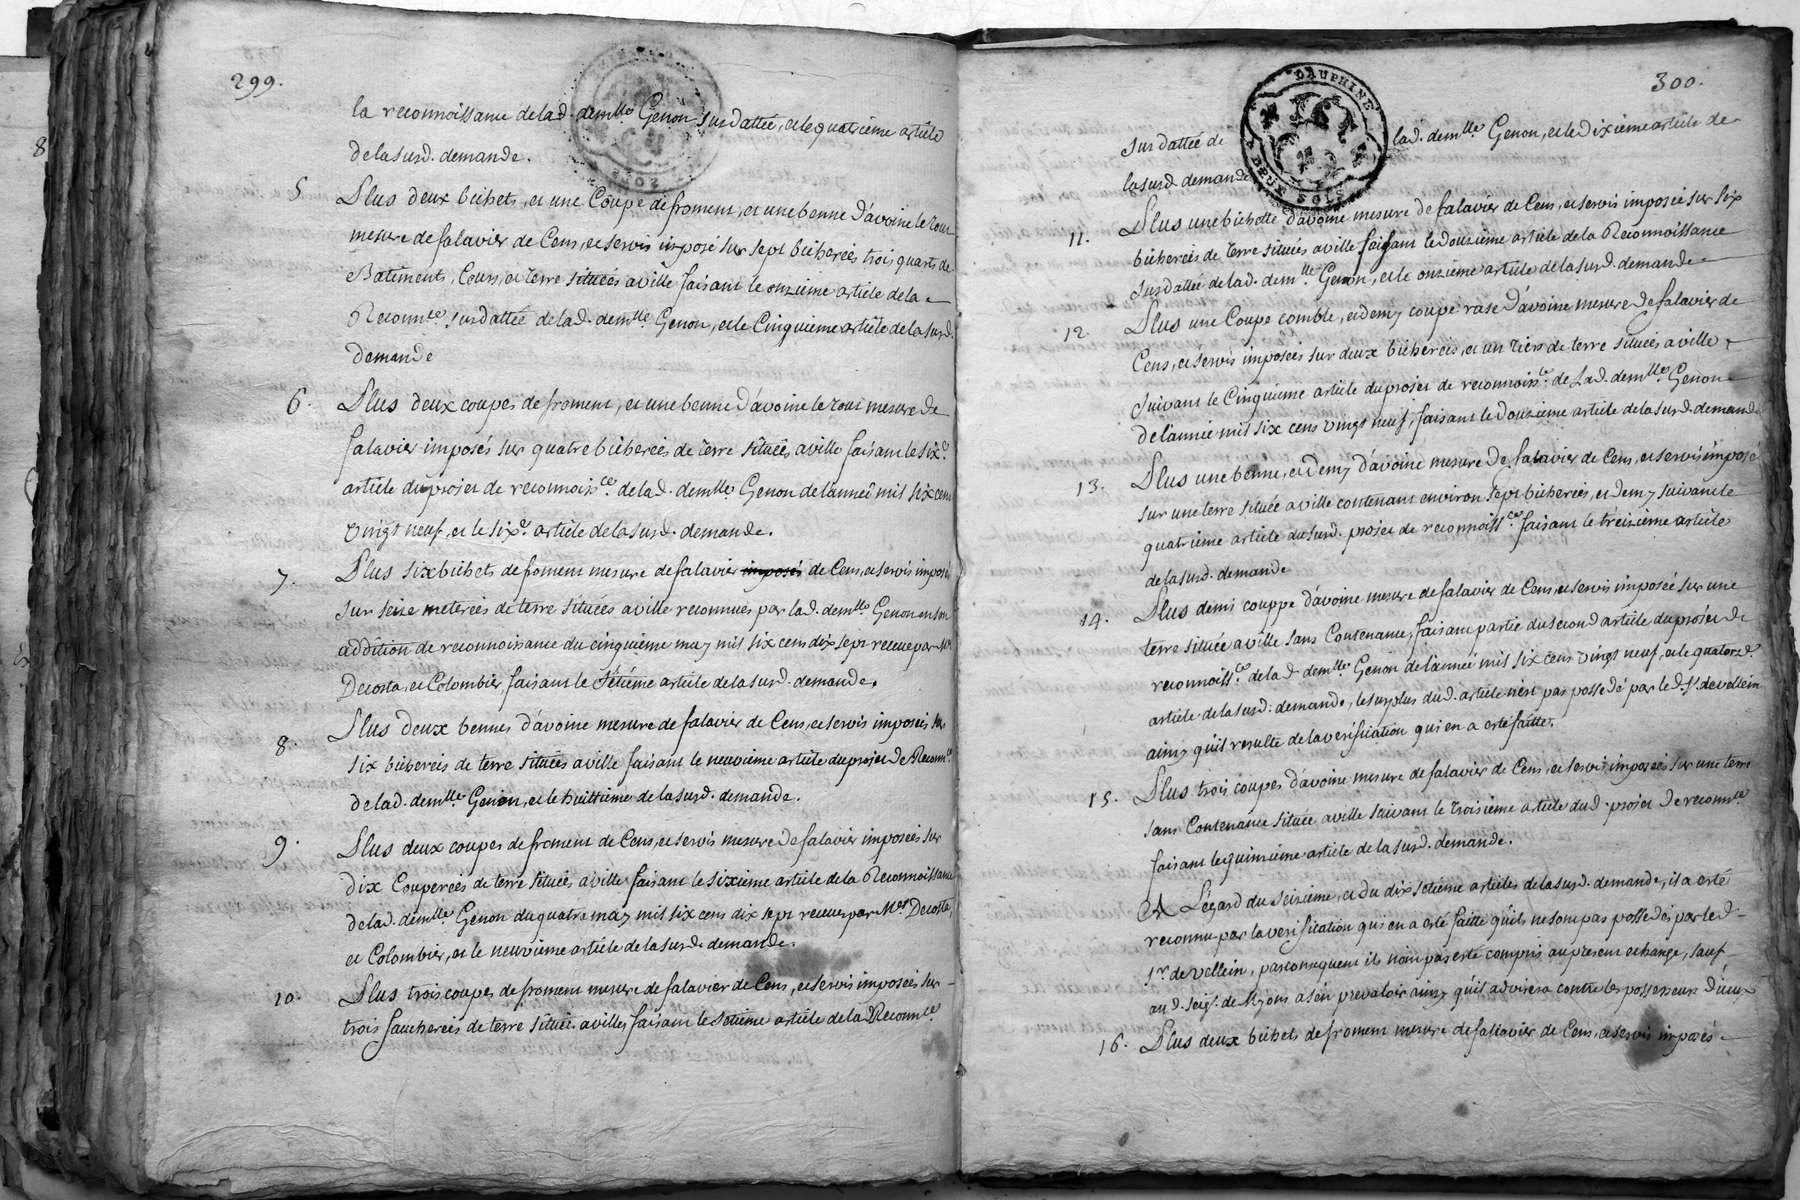 299.
la reconnoissance de lad. demlle Genon susdattée, et le quatrieme article
de la susd. demande.
5 Plus deux bichets, et une Coupe de froment, et une benne d'avoine le tout
mesure de falavier de Cens, et servis imposé sur sept bicherées trois quarts de
Batiments, Cours, et terre situées a ville faisant le onzieme article de la
Reconnce. susdattée de lad. demlle Genon, et le Cinquieme article de la susd.
demande
6. Plus deux coupes de froment, et une benne d'avoine le tout mesure de
falavier imposés sur quatre bicherées de terre situées a ville faisant le sixe.
article du projet de reconnoisce. de lad. demlle Genon de l'année mil six cens
vingt neuf, et le sixe. article de la susd. demande.
7. Plus six bichets de froment mesure de falavier imposés de Cens, et servis imposés
sur seize meterées de terre situées a ville reconnues par lad. demlle Genon en son
addition de reconnoissance du cinquieme may mil six cens dix sept receue par Me.
Decosta, et Colombier faisant le setiéme article de la susd. demande.
8. Plus deux bennes d'avoine mesure de falavier de Cens, et servis imposées sur
six bicherées de terre situées a ville faisant le neuvieme article du projet de Reconnce
de lad. demlle Genon, et le huittieme de la susd. demande.
9. Plus deux coupes de froment de Cens, et servis mesure de falavier imposées sur
dix Couperées de terre situées a ville faisant le sixieme article de la Reconnoissance
de lad. demlle Genon du quatre may mil six cens dix sept receue par Mes Decosta,
et Colombier, et le neuvieme article de la susd. demande.
10. Plus trois coupes de froment mesure de falavier de Cens, et servis imposées sur
trois faucherées de terre situées a ville, faisant le Setieme article de la Reconnce.
300.
DAUPHINE
DEUX SOLS
susdattée de lad. demlle Genon, et le dixieme article de
la susd. demande
11. Plus une bichette d'avoine mesure de falavier de Cens, et servis imposée sur six
bicherées de terre situées a ville faisant le douzieme article de la Reconnoissance
susdattée de lad. demlle. Genon, et le onzieme article de la susd. demande
12. Plus une Coupe comble, et demy coupe rase d'avoine mesure de falavier de
Cens, et servis imposées sur deux bicherées, et un tiers de terre situées a ville
suivant le Cinquieme article du projet de reconnoisce. de Lad. demlle Genon
de l'année mil six cens vingt neuf, faisant le douzieme article de la susd. demande
13. Plus une benne, et demy d'avoine mesure de falavier de Cens, et servis imposé
sur une terre située a ville contenant environ sept bicherées, et demy suivant le
quatrieme article du susd. projet de reconnoissce. faisant le treizieme article
de la susd. demande
14. Plus demi couppe d'avoine mesure de falavier de Cens, et servis imposée sur une
terre située a ville sans Contenance, faisant partie du second article du projet de
reconnoissce. de la d. demlle Genon de l'année mil six cens vingt neuf, et le quatorze.
article de la susd. demande, le surplus dud. article n'est pas possedé par le d. Sr. de vellein
ainsy qu'il resulte de la verification qui en a esté faitte.
15. Plus trois coupes d'avoine mesure de falavier de Cens, et servis imposées sur une terre
sans Contenance située a ville suivant le troisieme article dud. projet de reconnce.
faisant le quinzieme article de la susd. demande.
A L'egard du seizieme, et du dix setieme articles de la susd. demande, il a esté
reconnu par la verification qui en a esté faitte qu'ils ne sont pas possedés par le d.
Sr. de vellein, par consequent ils n'ont pas esté compris au present echange, sauf
au d. seigr. de Myons a s'en prevaloir ainsy qu'il advisera contre les possesseurs d'iceux
16. Plus deux bichets de froment mesure de fallavier de Cens, et servis imposés